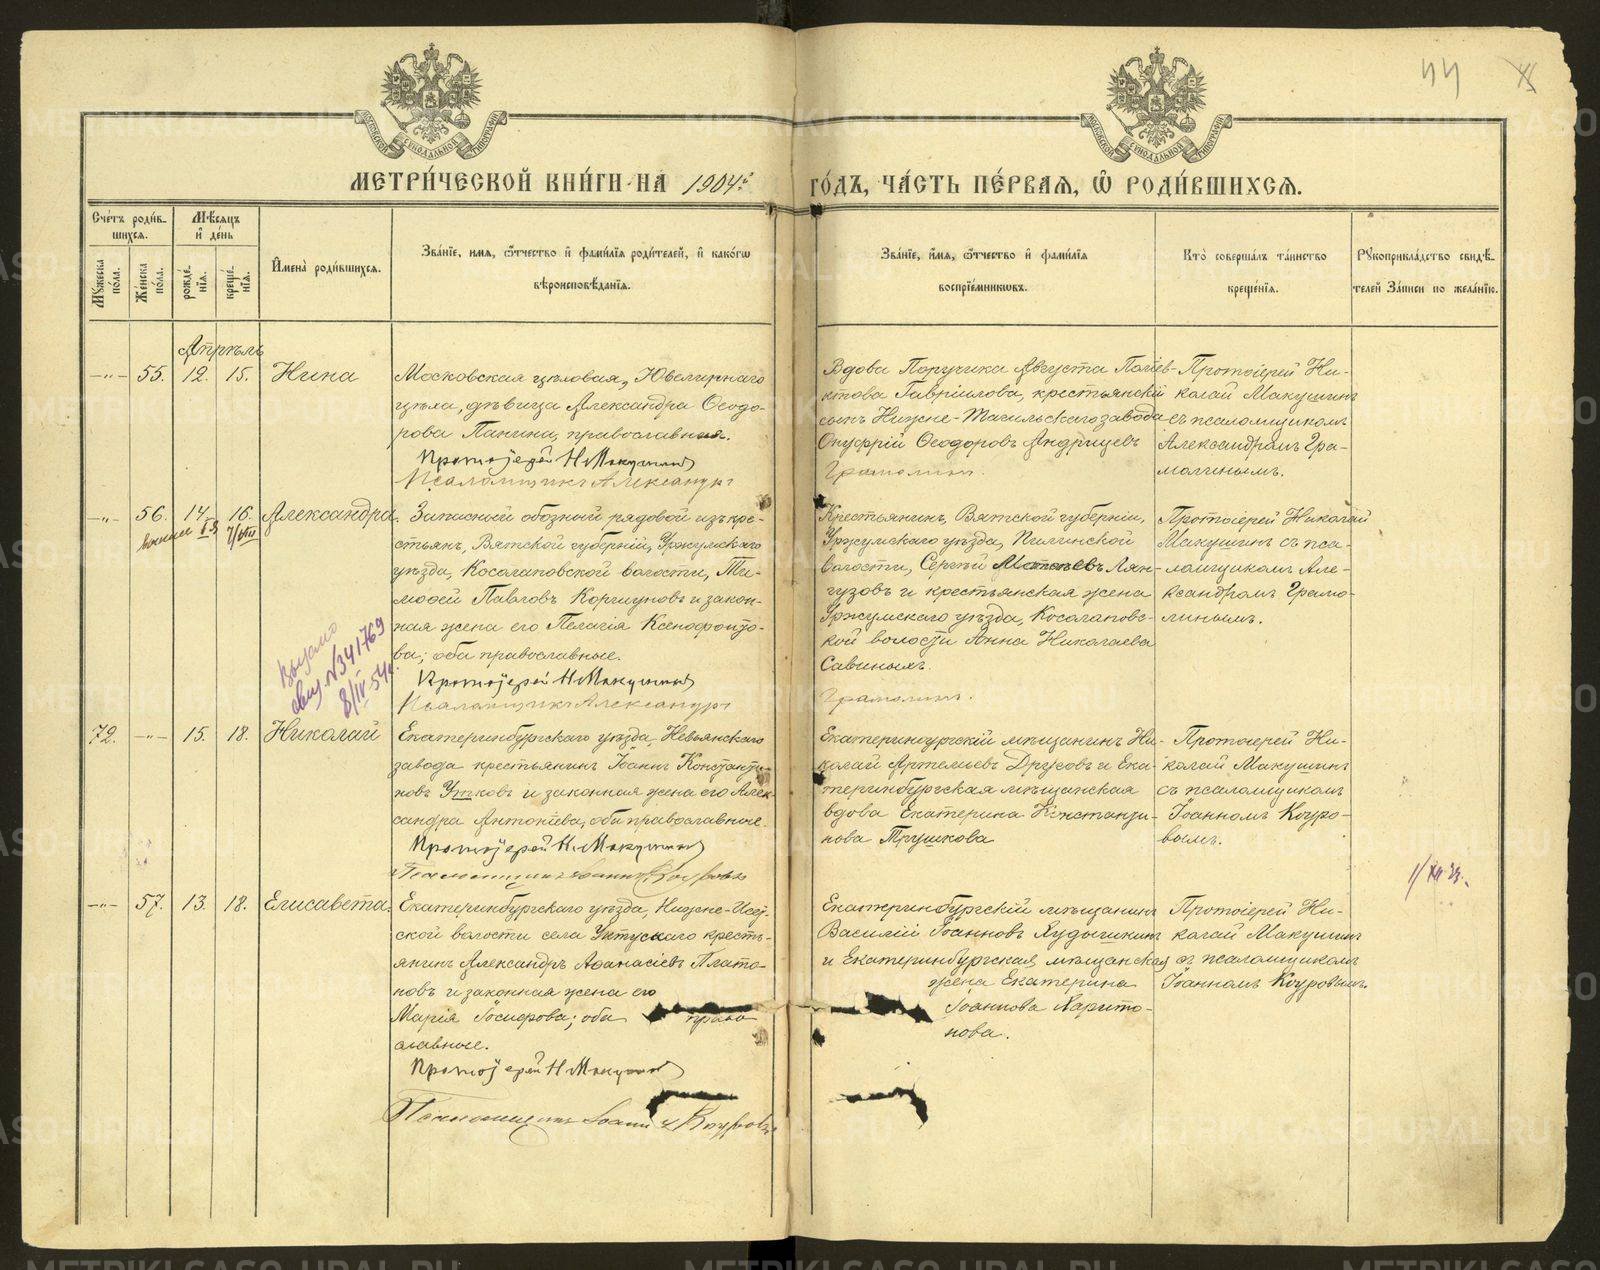 44
МЕТРИ́ЧЕСКОЙ КНИ́ГИ НА 1904й ГО́ДЪ, ЧА́СТЬ ПЕ́РВАЯ, Ѿ РОДИ́ВШИХСЯ.
МОСКОВСКОЙ СѴНОДАЛЬНОЙ ТИПОГРАФІИ
МОСКОВСКОЙ СѴНОДАЛЬНОЙ ТИПОГРАФІИ
Сче́тъ роди́вшихся.
Мꙋ́жеска по́ла.
Же́нска по́ла.
Мѣ́сяцъ и҆ де́нь
рожде́нія.
креще́нія.
И҆мена̀ роди́вшихся.
Зва́ніе, имя, ѻ҆́тчество и҆ фами́лія роди́телей, и҆ како́гѡ
вѣроисповѣ́данія.
Зва́ніе, и҆́мя, ѻ҆́тчество и҆ фами́лія
воспріе́мникѡвъ.
Кто̀ соверша́лъ та́инство
креще́нія.
Рꙋкоприкла́дство свидѣ́-
телей За́писи по жела́нію.
Апрѣль
—"— 55. 12. 15. Нина
Московская цѣховая, Ювелирнаго
цѣха, дѣвица Александра Ѳеодо-
рова Панина, православная.
Протоіерей Н Макушинъ
Псаломщикъ Александръ Грамолинъ.
Вдова Поручика Августа Поліев-
ктова Гавріилова, крестьянскій
сынъ Нижне-Тагильскаго завода
Онуфрій Ѳеодоровъ Андрицевъ
Протоіерей Ни-
колай Макушинъ
съ псаломщикомъ
Александромъ Гра-
молинымъ.
—"— 56. 14. 16. Александра.
7/VIII
Записной обозный рядовой изъ кре-
стьянъ, Вятской губерніи, Уржумскаго
уѣзда, Косолаповской волости, Ти-
моѳей Павловъ Коршуновъ и закон-
ная жена его Пелагія Ксенофонто-
ва; оба православные.
Протоіерей Н Макушинъ
Псаломщикъ Александръ Грамолинъ.
Крестьянинъ, Вятской губерніи,
Уржумскаго уѣзда, Пилинской
волости, Сергѣй Матвѣевъ Лян-
гузовъ и крестьянская жена
Уржумскаго уѣзда, Косолаповс-
кой волости Анна Николаева
Савиныхъ.
Протоіерей Николай
Макушинъ съ пса-
ломщикомъ Але-
ксандромъ Грамо-
линымъ.
Выдано
свид. №341769
8/IV-54г.
72. —"— 15. 18. Николай
Екатеринбургскаго уѣзда, Невьянскаго
завода крестьянинъ Іоаннъ Константи-
новъ Утковъ и законная жена его Алек-
сандра Антоніева; оба православные.
Протоіерей Н. Макушинъ
Псаломщикъ Іоаннъ Коуровъ
Екатеринбургскій мѣщанинъ Ни-
колай Артемьевъ Друсовъ и Ека-
теринбургская мѣщанская
вдова Екатерина Константи-
нова Трушкова
Протоіерей Ни-
колай Макушинъ
съ псаломщикомъ
Іоанномъ Коуро-
вымъ.
—"— 57. 13. 18. Елисавета.
Екатеринбургскаго уѣзда, Нижне-Исет-
ской волости села Уктусскаго кресть-
янинъ Александръ Аѳанасіевъ Плато-
новъ и законная жена его
Марія Іосифова; оба право
славные.
Протоіерей Н Макушинъ
Псаломщикъ Іоаннъ Коуровъ
Екатеринбургскій мѣщанинъ
Василій Іоанновъ Худышкинъ
и Екатеринбургская мѣщанская
жена Екатерина
Іоаннова Харито-
нова.
Протоіерей Ни-
колай Макушинъ
съ псаломщикомъ
Іоанномъ Коуровымъ.